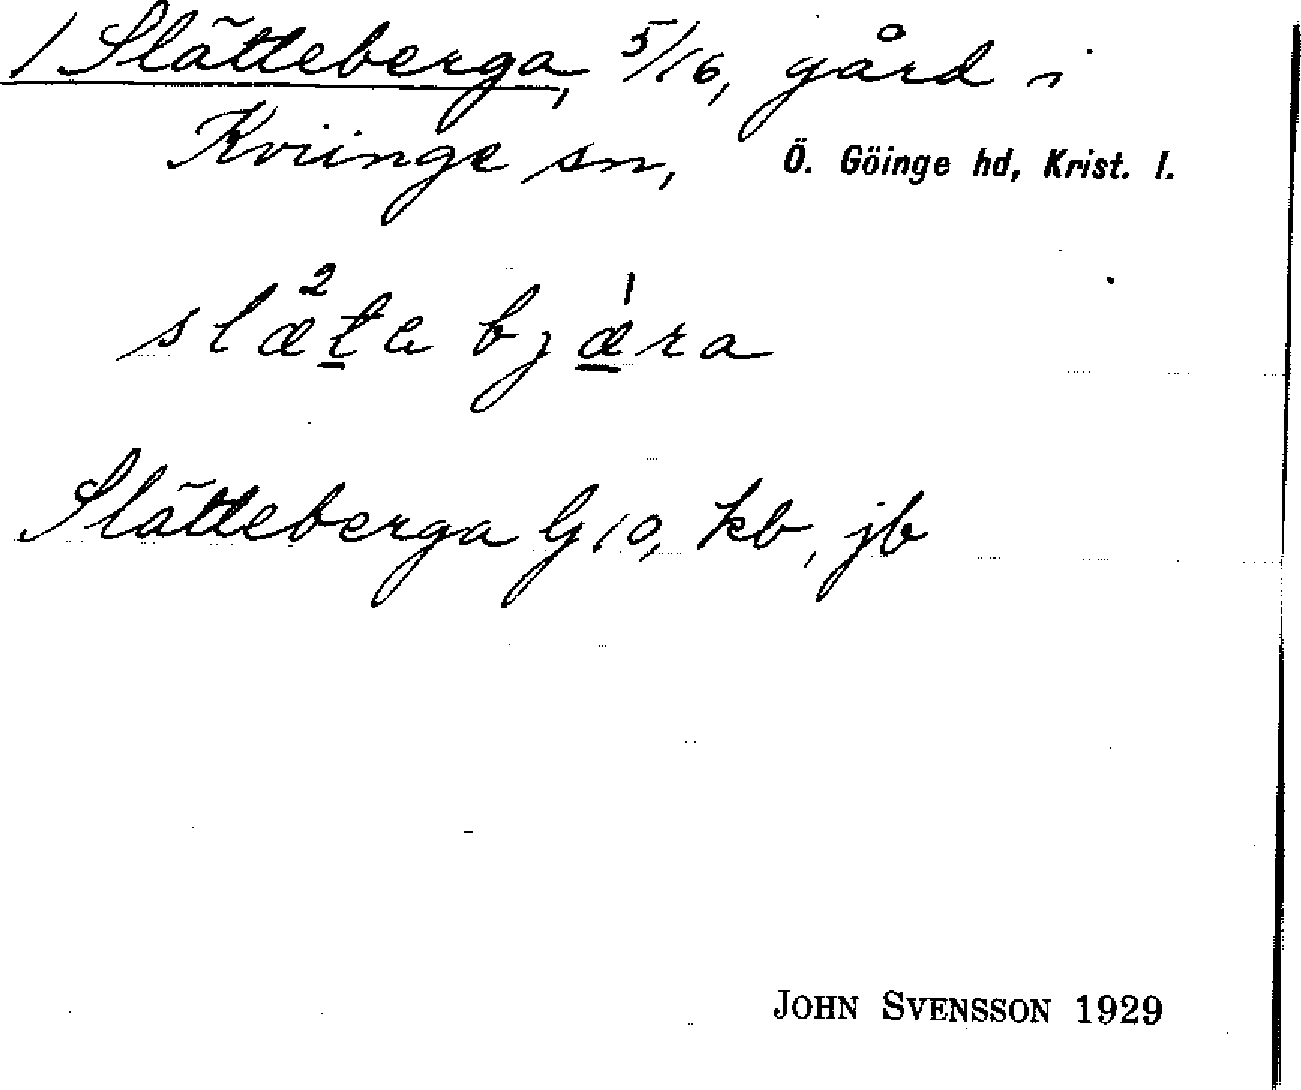 1 Slätteberga, 5/16, gård i
Kviinge sn, Ö. Göinge hd, Krist. l.
slæ²ta bjæ¹ra
Slätteberga G 10, kb, jb
JOHN SVENSSON 1929